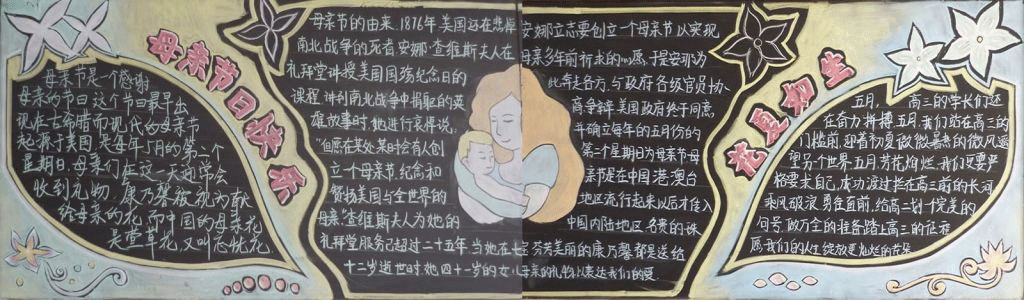 母亲节日快乐
母亲节是个感谢
母亲的节日这个节日最早出
现在古希腊而现代的母亲节
起源于美国是每年5月的第二个
星期日母亲们在这一天通常会
收到礼物,康乃馨被视为献
给母亲的花,而中国的母亲花
是萱草花,又叫忘忧花
母亲节的由来,1876年,美国还在悲悼
南北战争的死者,安娜·查维斯夫人在
礼拜堂讲授美国国殇纪念日的
课程,讲到南北战争中捐躯的英
雄故事时,她进行哀祷说:
"但愿在某处某时会有人创
立个母亲节,纪念和
赞扬美国与全世界的
母亲"查维斯夫人为她的
礼拜堂服务已超过二十五年,当她在七
十二岁逝世时她四十一岁的女儿
安娜立志要创立一个母亲节以实现
母亲多年前祈求的心愿,于是安娜为
此奔走各方,与政府各级官员协
商争辩,美国政府终于同意,
并确立每年的五月份的
第二个星期日为母亲节母
亲节是在中国港,澳台
地区流行起来以后才传入
中国内陆地区,名贵的珠
宝,芬芳美丽的康乃馨都是送给
母亲的礼物以表达我们的爱
花夏初生
五月,高三的学长们还
在奋力拼搏,五月,我们站在高三的
门槛前,迎着初夏微微燥热的微风遥
望另一个世界,五月芳花绚烂,我们更要严
格要求自己,成功渡过拦在高三前的长河,
乘风破浪,勇往直前,给高二划个完美的
句号,做万全的准备踏上高三的征程
愿我们的人生绽放更为灿烂的花朵